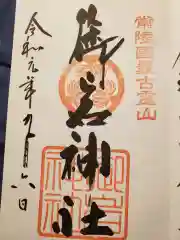 常陸国最古霊山
御岩神社
令和元年九月六日
御岩
神社